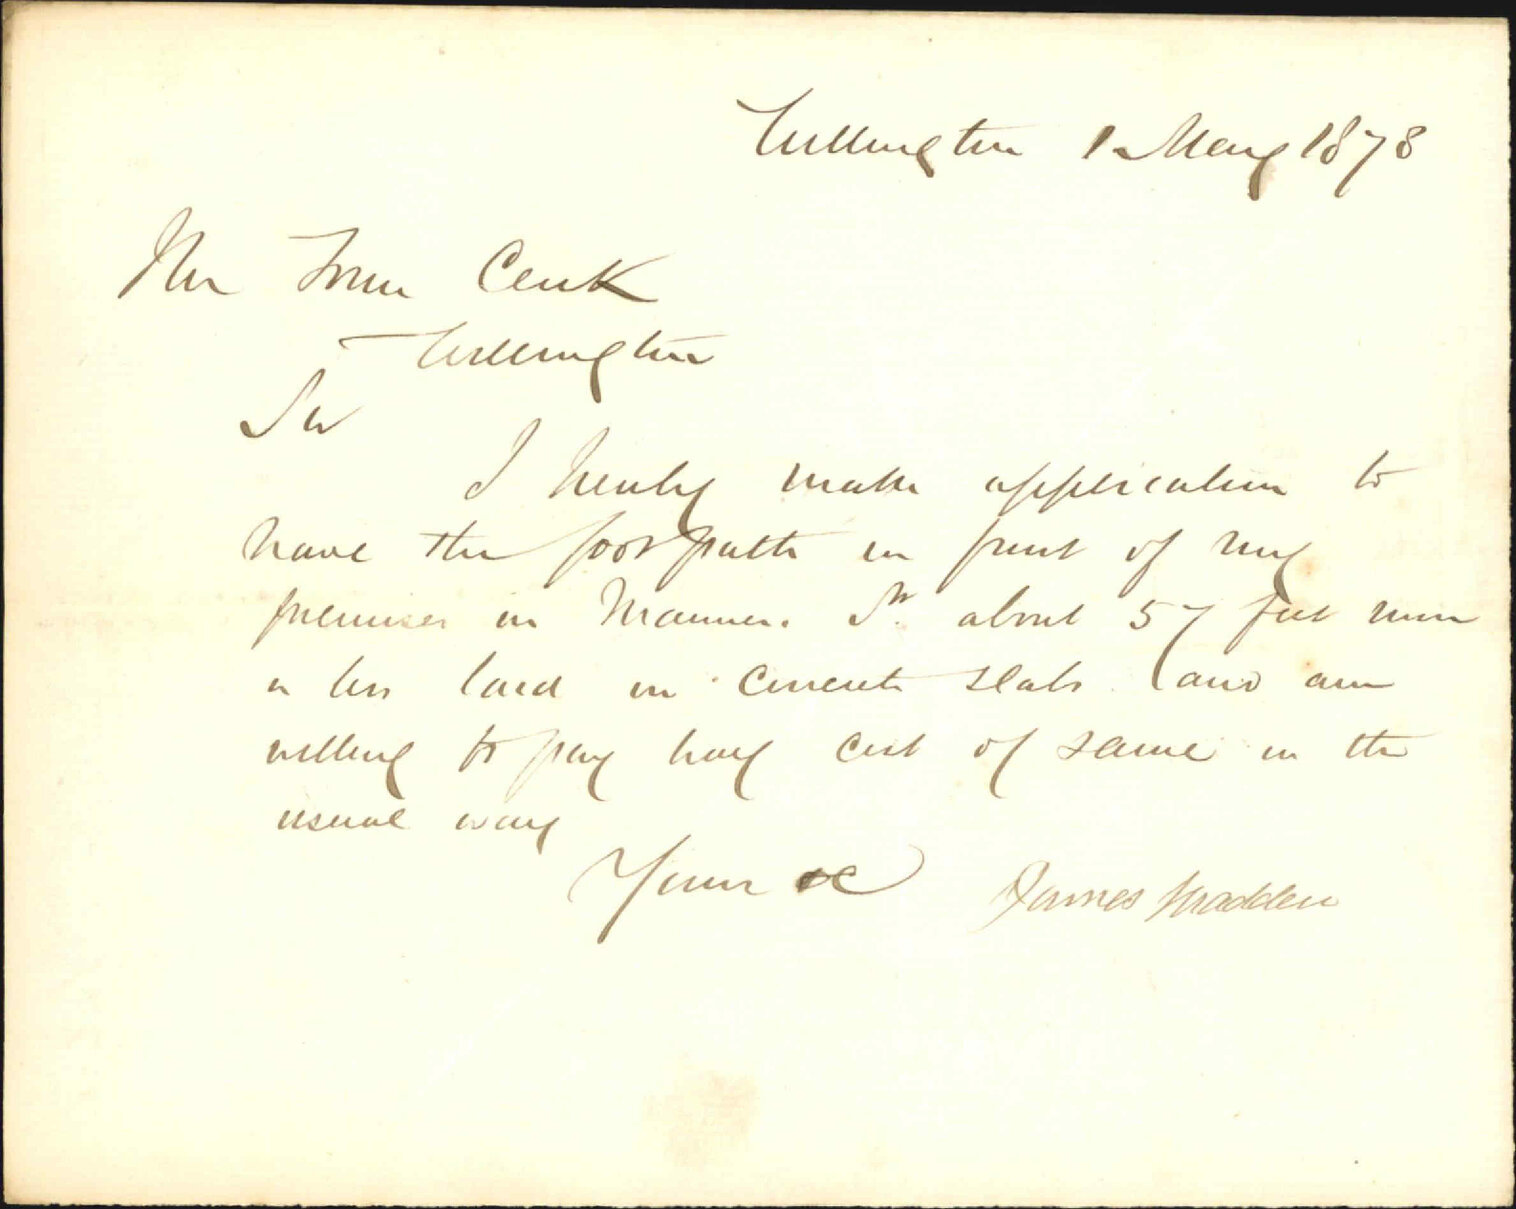 Wellington 1 May 1878
The Town Clerk
Wellington
Sir
I hereby make application to
have the footpath in front of my
premises in Manners St. about 57 feet more
or less laid in cement slabs and am
willing to pay half cost of same in the
usual way
Yours &c James Madden